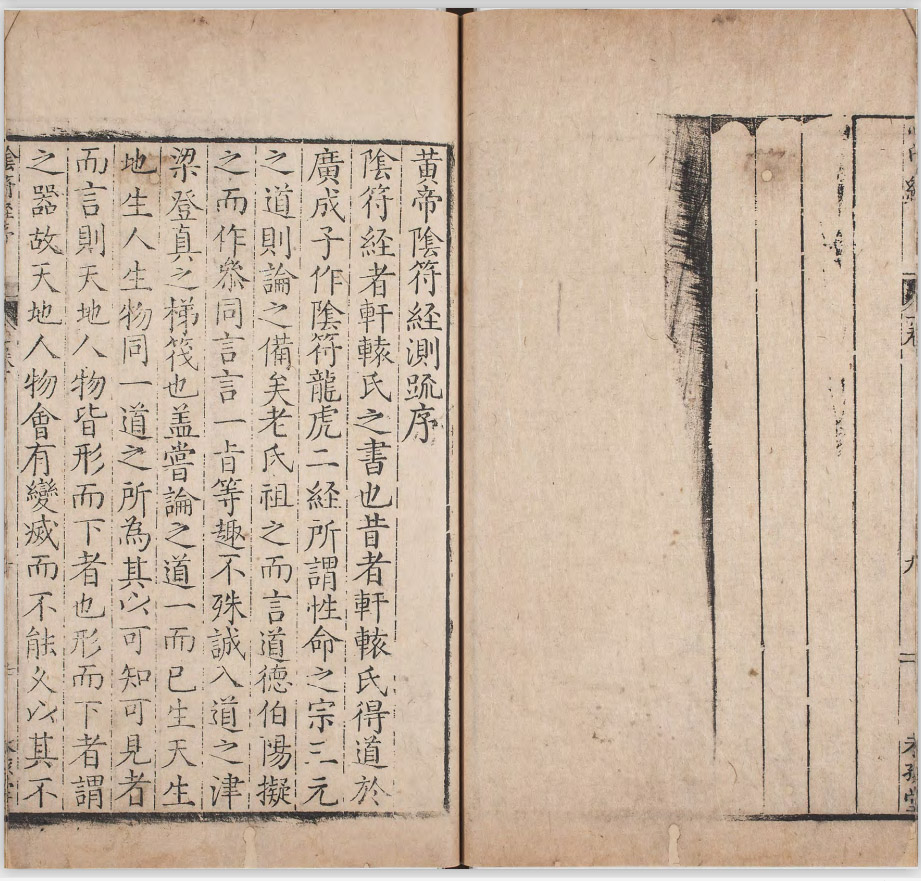 黄帝陰符経測疏序
陰符経者軒轅氏之書也昔者軒轅氏得道於
廣成子作陰符龍虎二経所謂性命之宗三元
之道則論之備矣老氏祖之而言道德伯陽擬
之而作叅同言言一㫖等趣不殊誠入道之津
梁登真之梯筏也盖嘗論之道一而已生天生
地生人生物同一道之所為其以可知可見者
而言則天地人物皆形而下者也形而下者謂
之器故天地人物會有變滅而不能久以其不